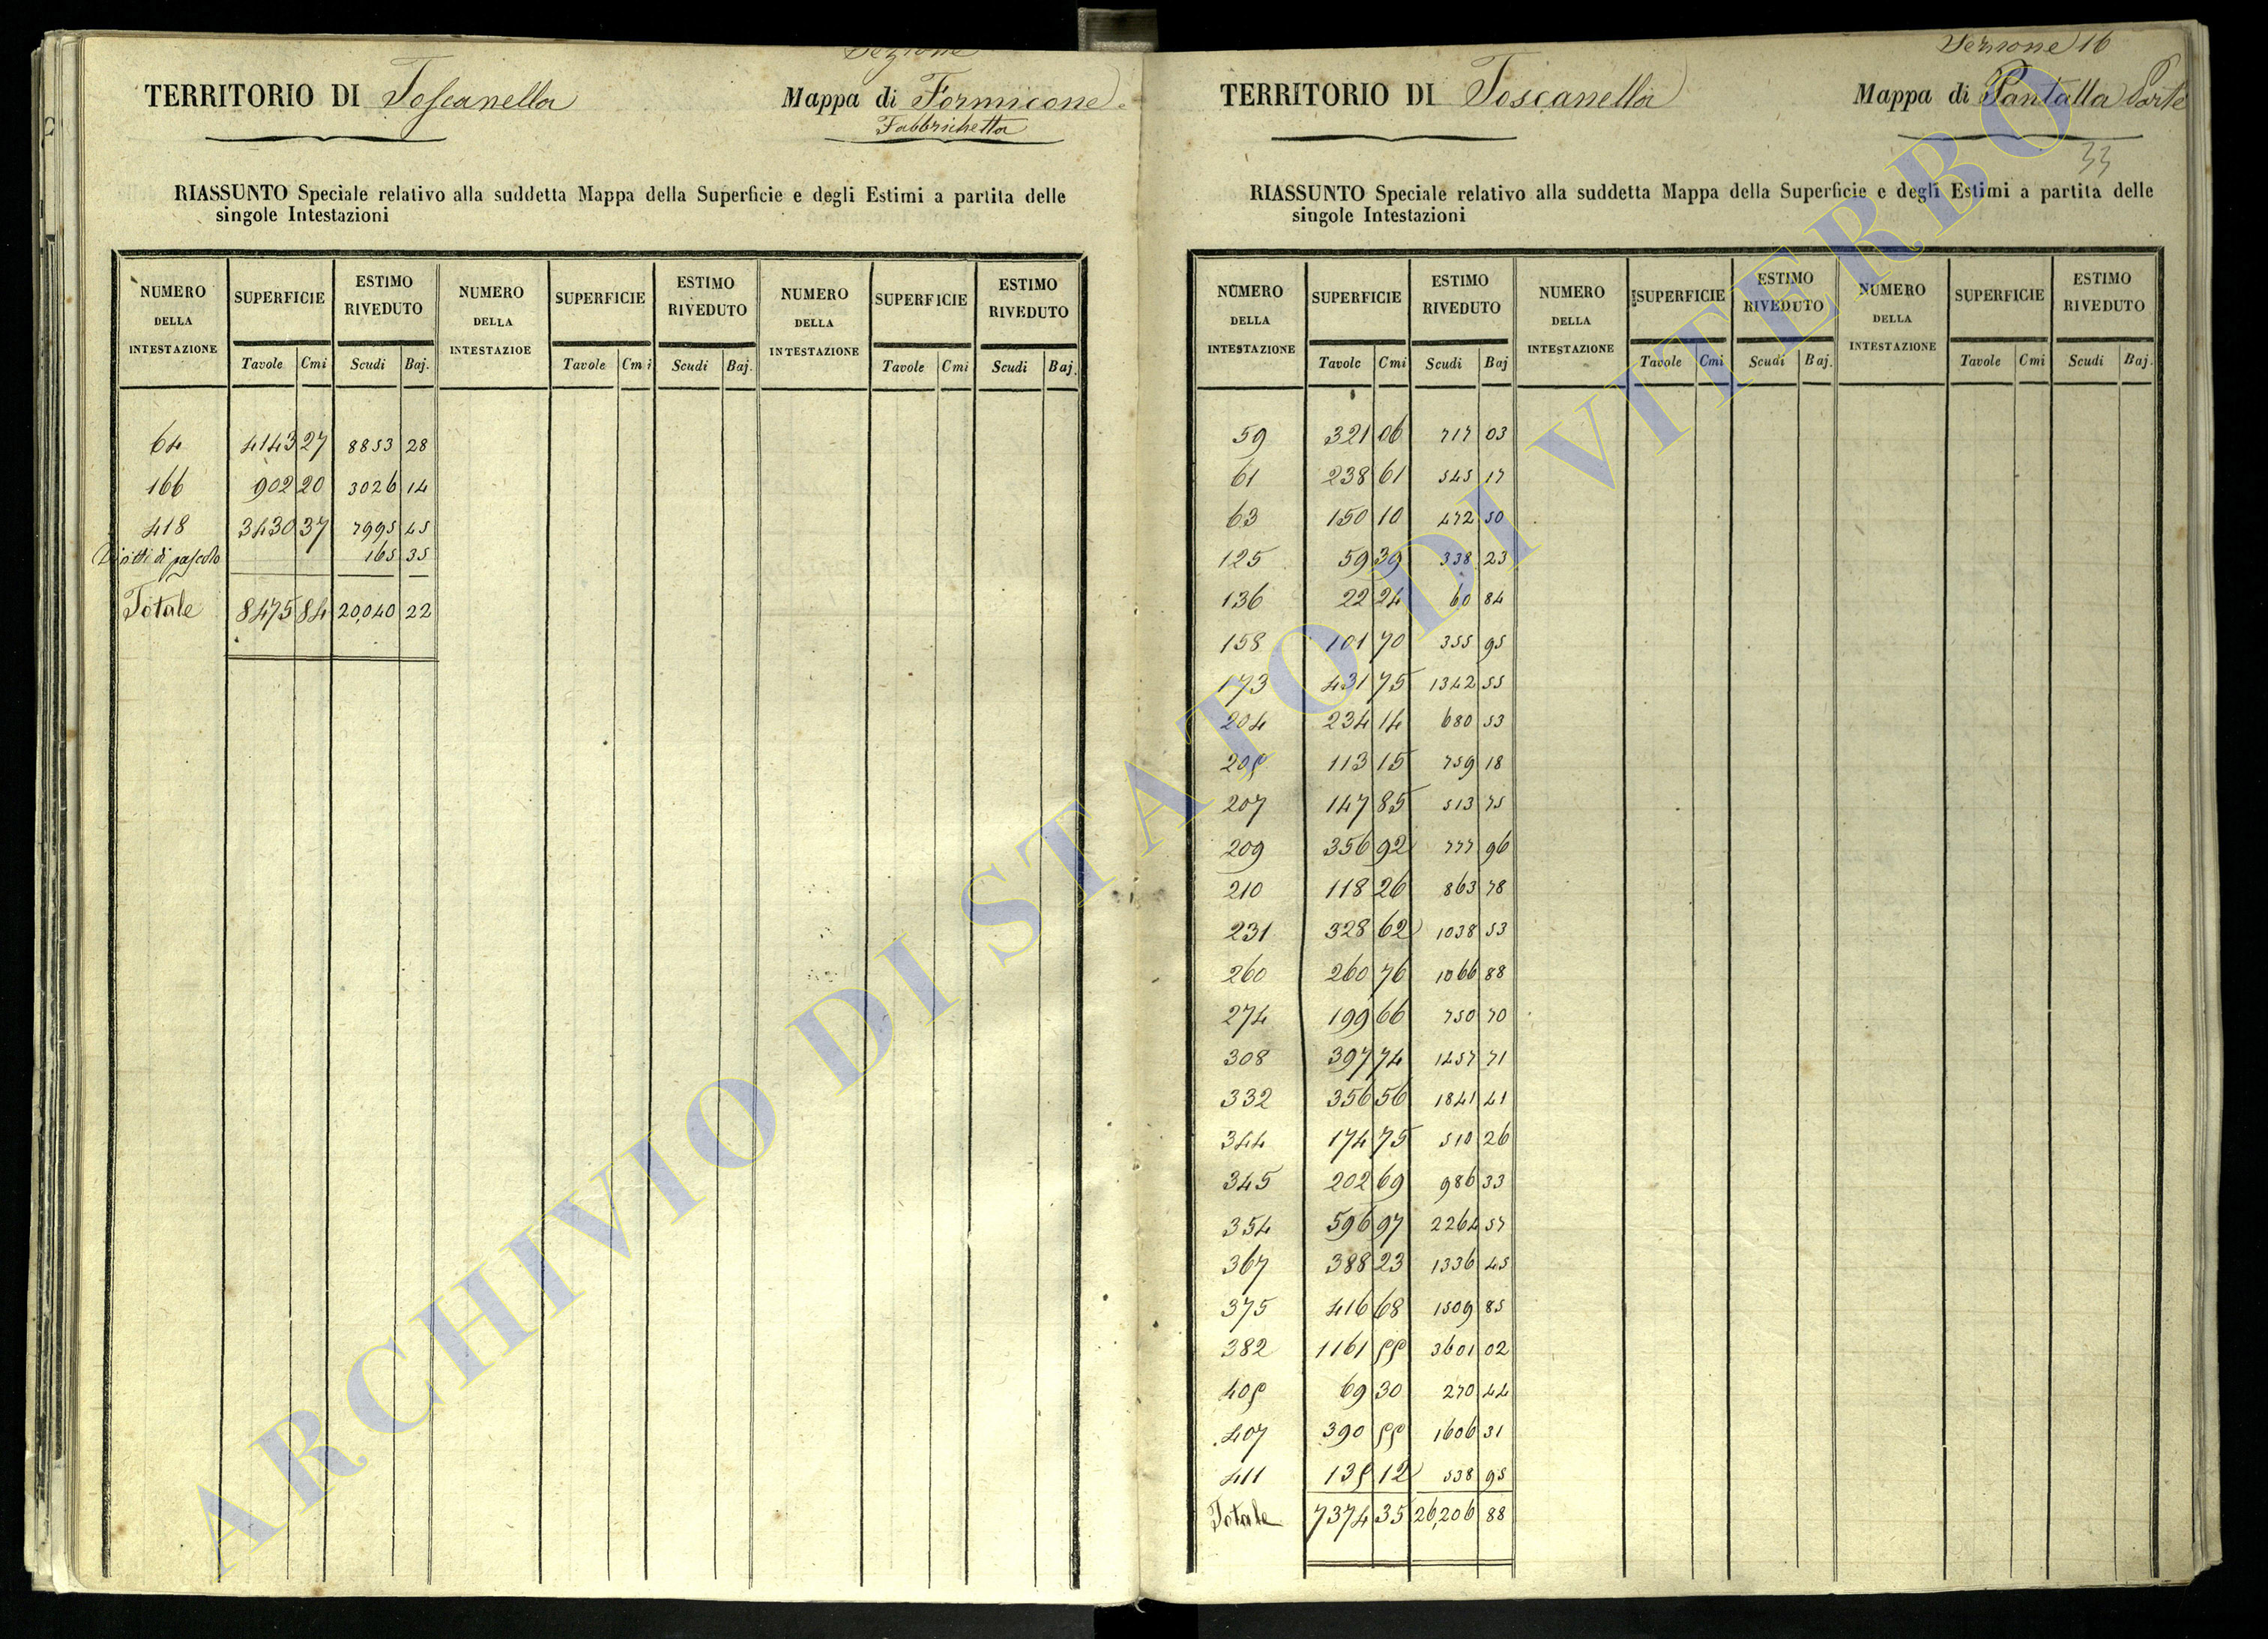 Sezione
TERRITORIO DI Toscanella
Mappa di Formicone
Fabbrichetta
RIASSUNTO Speciale relativo alla suddetta Mappa della Superficie e degli Estimi a partita delle
singole Intestazioni
NUMERO DELLA INTESTAZIONE SUPERFICIE ESTIMO RIVEDUTO NUMERO DELLA INTESTAZIOE SUPERFICIE ESTIMO RIVEDUTO NUMERO DELLA INTESTAZIONE SUPERFICIE ESTIMO RIVEDUTO
Tavole Cmi Scudi Baj. Tavole Cmi Scudi Baj. Tavole Cmi Scudi Baj.
64 4143 27 8853 28
166 902 20 3026 14
418 3430 37 7995 45
Diritti di pascolo 165 35
Totale 8475 84 20,040 22
Sezione 16
TERRITORIO DI Toscanella
Mappa di Pantalla Parte
33
RIASSUNTO Speciale relativo alla suddetta Mappa della Superficie e degli Estimi a partita delle
singole Intestazioni
NUMERO DELLA INTESTAZIONE SUPERFICIE ESTIMO RIVEDUTO NUMERO DELLA INTESTAZIONE SUPERFICIE ESTIMO RIVEDUTO NUMERO DELLA INTESTAZIONE SUPERFICIE ESTIMO RIVEDUTO
Tavole Cmi Scudi Baj Tavole Cmi Scudi Baj. Tavole Cmi Scudi Baj.
59 321 06 717 03
61 238 61 545 17
63 150 10 472 50
125 59 39 338 23
136 22 24 60 84
158 101 70 355 95
173 431 75 1342 55
204 234 14 680 53
205 113 15 759 18
207 147 85 513 75
209 356 92 777 96
210 118 26 863 78
231 328 62 1038 53
260 260 76 1066 88
274 199 66 750 70
308 397 74 1457 71
332 356 56 1841 41
344 174 75 510 26
345 202 69 986 33
354 596 97 2264 57
367 388 23 1336 45
375 416 68 1509 85
382 1161 55 3601 02
405 69 30 270 44
407 390 55 1606 31
411 135 12 538 95
Totale 7374 35 26,206 88
ARCHIVIO DI STATO DI VITERBO